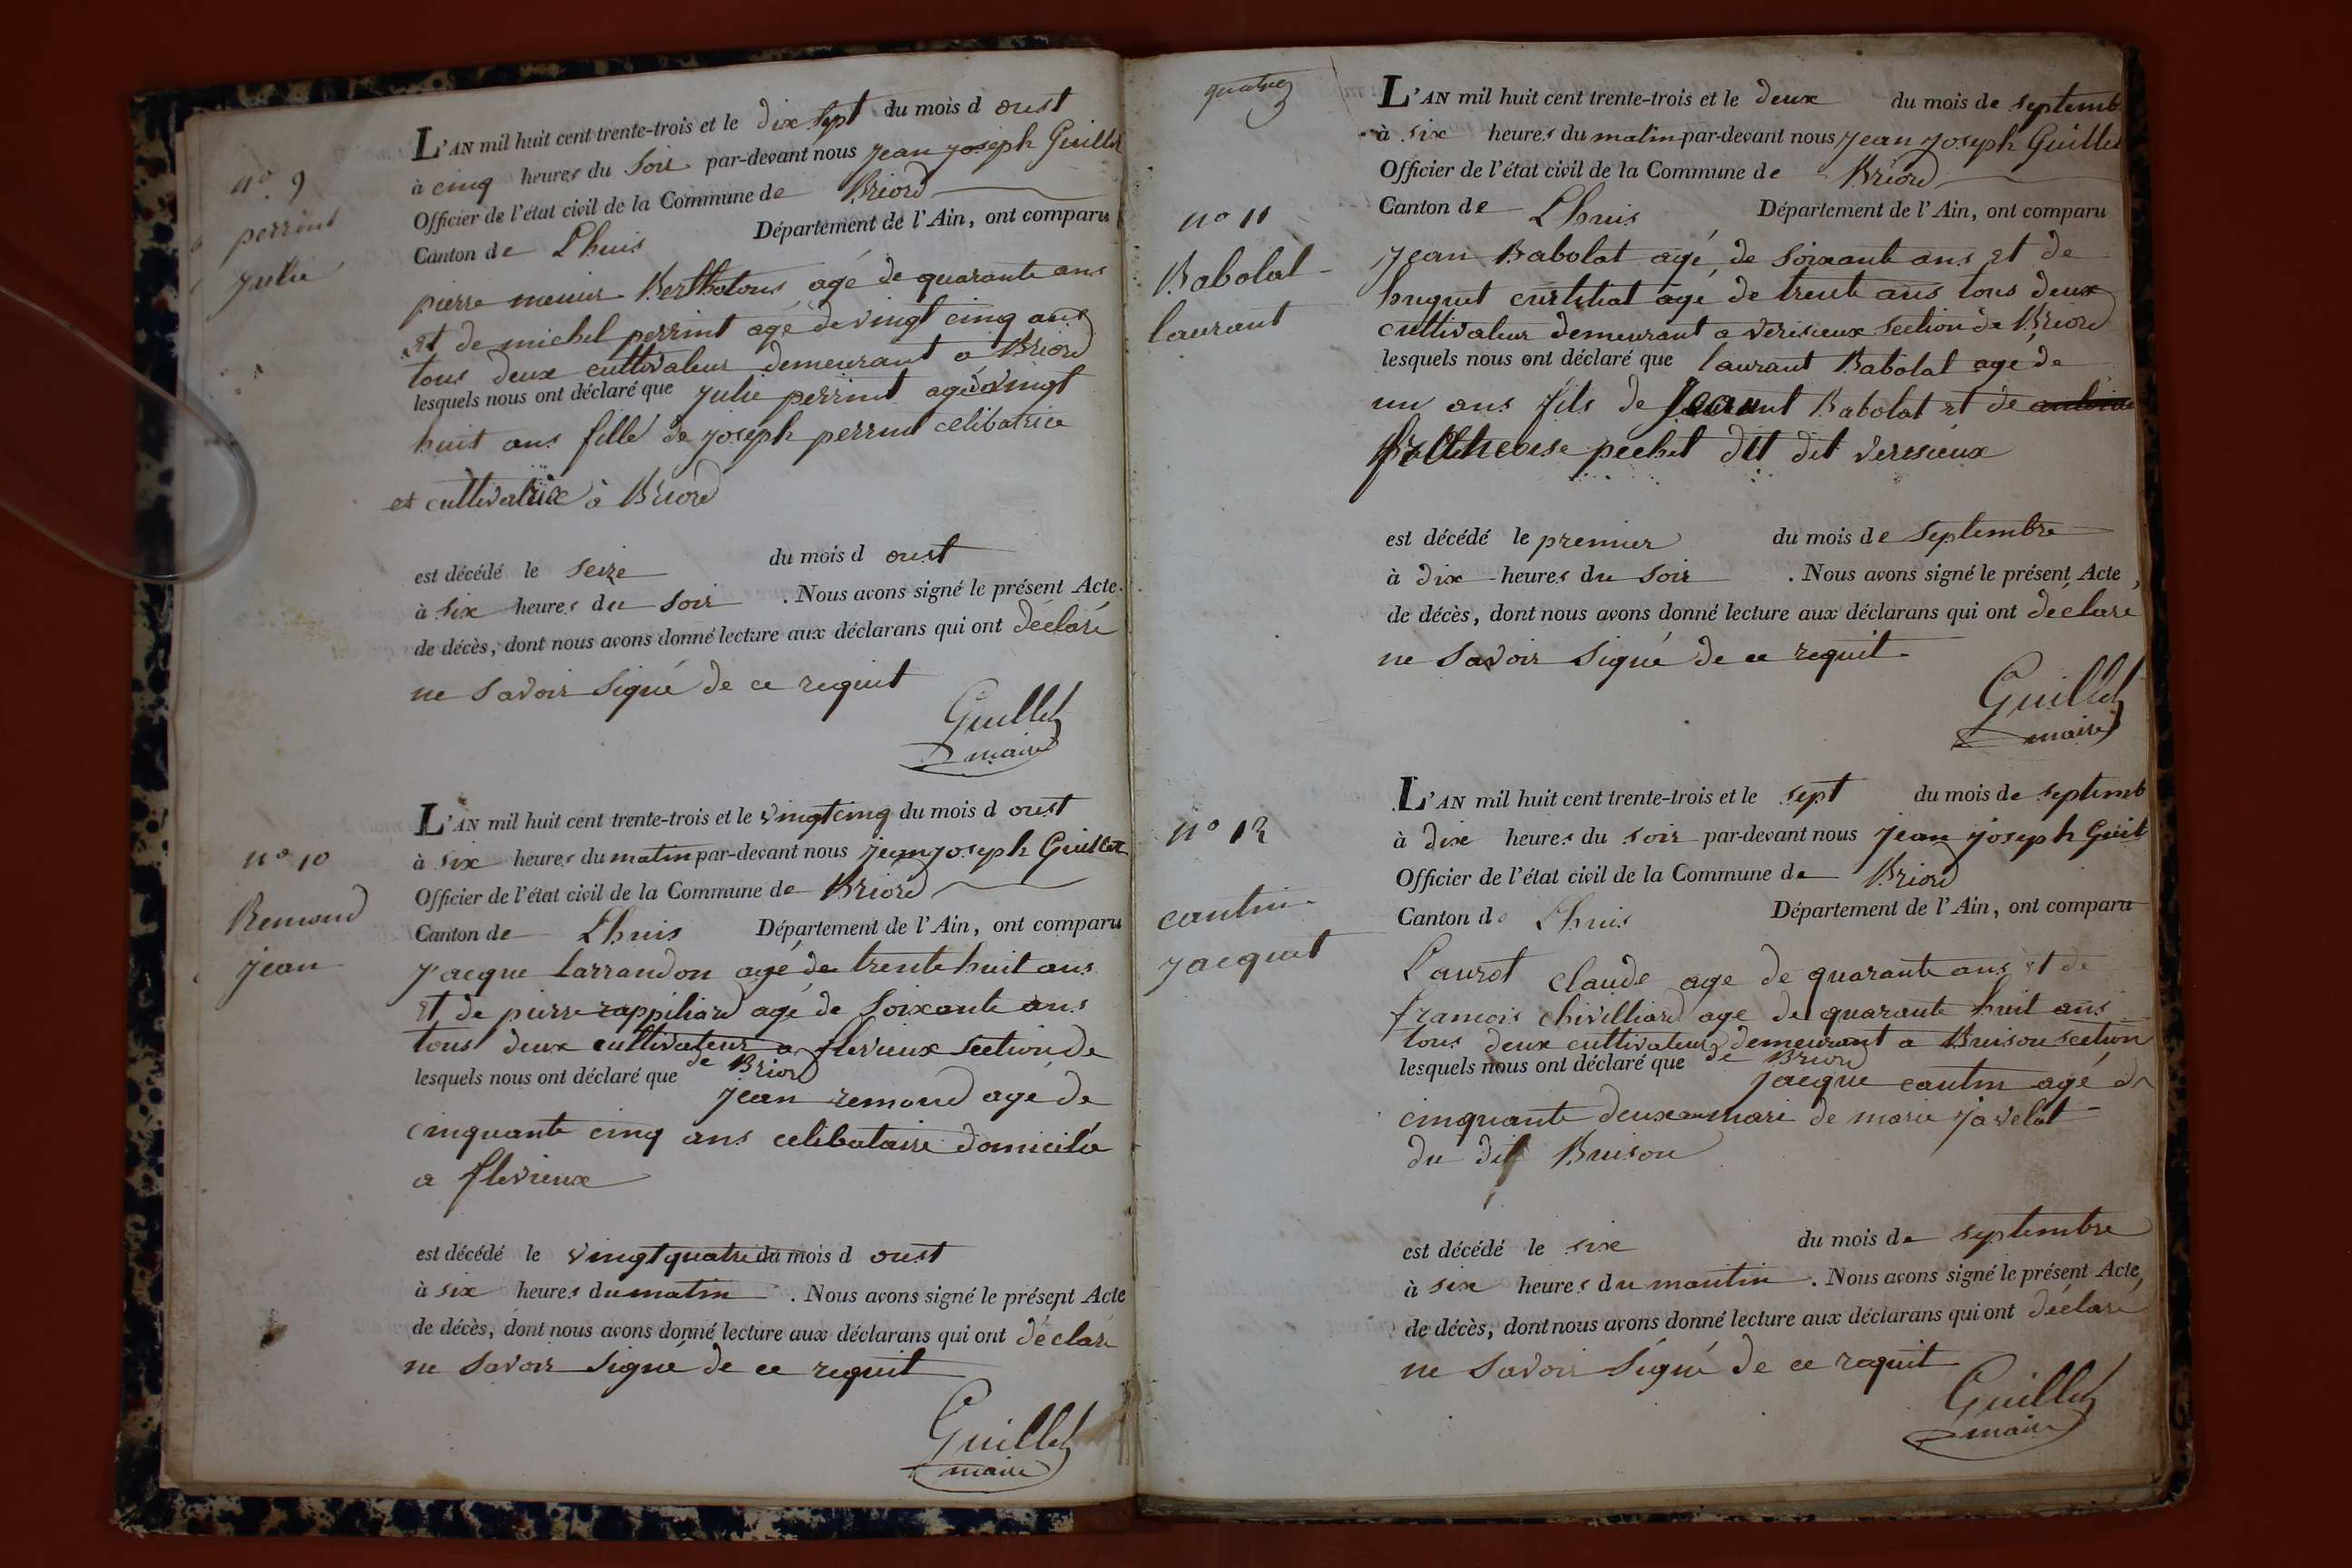 n° 9
perrint
Julie
L'AN mil huit cent trente-trois et le dix sept du mois d oust
à cinq heures du soir par-devant nous jean joseph Guillet
Officier de l'état civil de la Commune de Briord
Canton de Lhuis Département de l'Ain, ont comparu
pierre meunier Bertholons agé de quarante ans
et de michel perrint agé de vingt cinq ans
tous deux cultivateur demeurant a Briord
lesquels nous ont déclaré que julie perrint agé vingt
huit ans fille de joseph perrint celibatrice
et cultivatrix à Briord
est décédé le seize du mois d oust
à six heures du soir . Nous avons signé le présent Acte
de décès, dont nous avons donné lecture aux déclarans qui ont déclaré
ne savoir signé de ce requit
Guillet
maire
n° 10
Remond
jean
L'AN mil huit cent trente-trois et le vingt cinq du mois d oust
à six heures du matin par-devant nous jean joseph Guillet
Officier de l'état civil de la Commune de Briord
Canton de Lhuis Département de l'Ain, ont comparu
jacque larrandon agé de trente huit ans
et de pierre rappiliard agé de soixante ans
tous deux cultivateur a flevieux section de
de Briord
lesquels nous ont déclaré que jean remond agé de
cinquante cinq ans celibataire domicilié
a flevieux
est décédé le vingt quatre du mois d oust
à six heures du matin . Nous avons signé le présent Acte
de décès, dont nous avons donné lecture aux déclarans qui ont déclaré
ne savoir signé de ce requit
Guillet
maire
quatre
n° 11
Babolat
laurant
L'AN mil huit cent trente-trois et le deux du mois de septemb
à six heures du matin par-devant nous jean joseph Guillet
Officier de l'état civil de la Commune de Briord
Canton de Lhuis Département de l'Ain, ont comparu
jean Babolat agé de soixante ans et de
huguet curtitiat agé de trente ans tous deux
cultivateur demeurant a verisieux section de Briord
lesquels nous ont déclaré que laurant Babolat agé de
un ans fils de Babolat et de
pechet dit dit verisieux
est décédé le premier du mois de septembre
à dix heures du soir . Nous avons signé le présent Acte
de décès, dont nous avons donné lecture aux déclarans qui ont déclaré
ne savoir signé de ce requit
Guillet
maire
n° 12
cantin
jacquet
L'AN mil huit cent trente-trois et le sept du mois de septemb
à dix heures du soir par-devant nous jean joseph Guil
Officier de l'état civil de la Commune de Briord
Canton de Lhuis Département de l'Ain, ont comparu
Laurot claude age de quarante ans et de
francois chivilliard age de quarante huit ans
tous deux cultivateur demeurant a Buison section
de Briord
lesquels nous ont déclaré que jacque cantin agé de
cinquante deux ans mari de marie javelot
du dit Buison
est décédé le six du mois de septembre
à six heures du mantin . Nous avons signé le présent Acte
de décès, dont nous avons donné lecture aux déclarans qui ont déclaré
ne savoir signé de ce requit
Guillet
maire